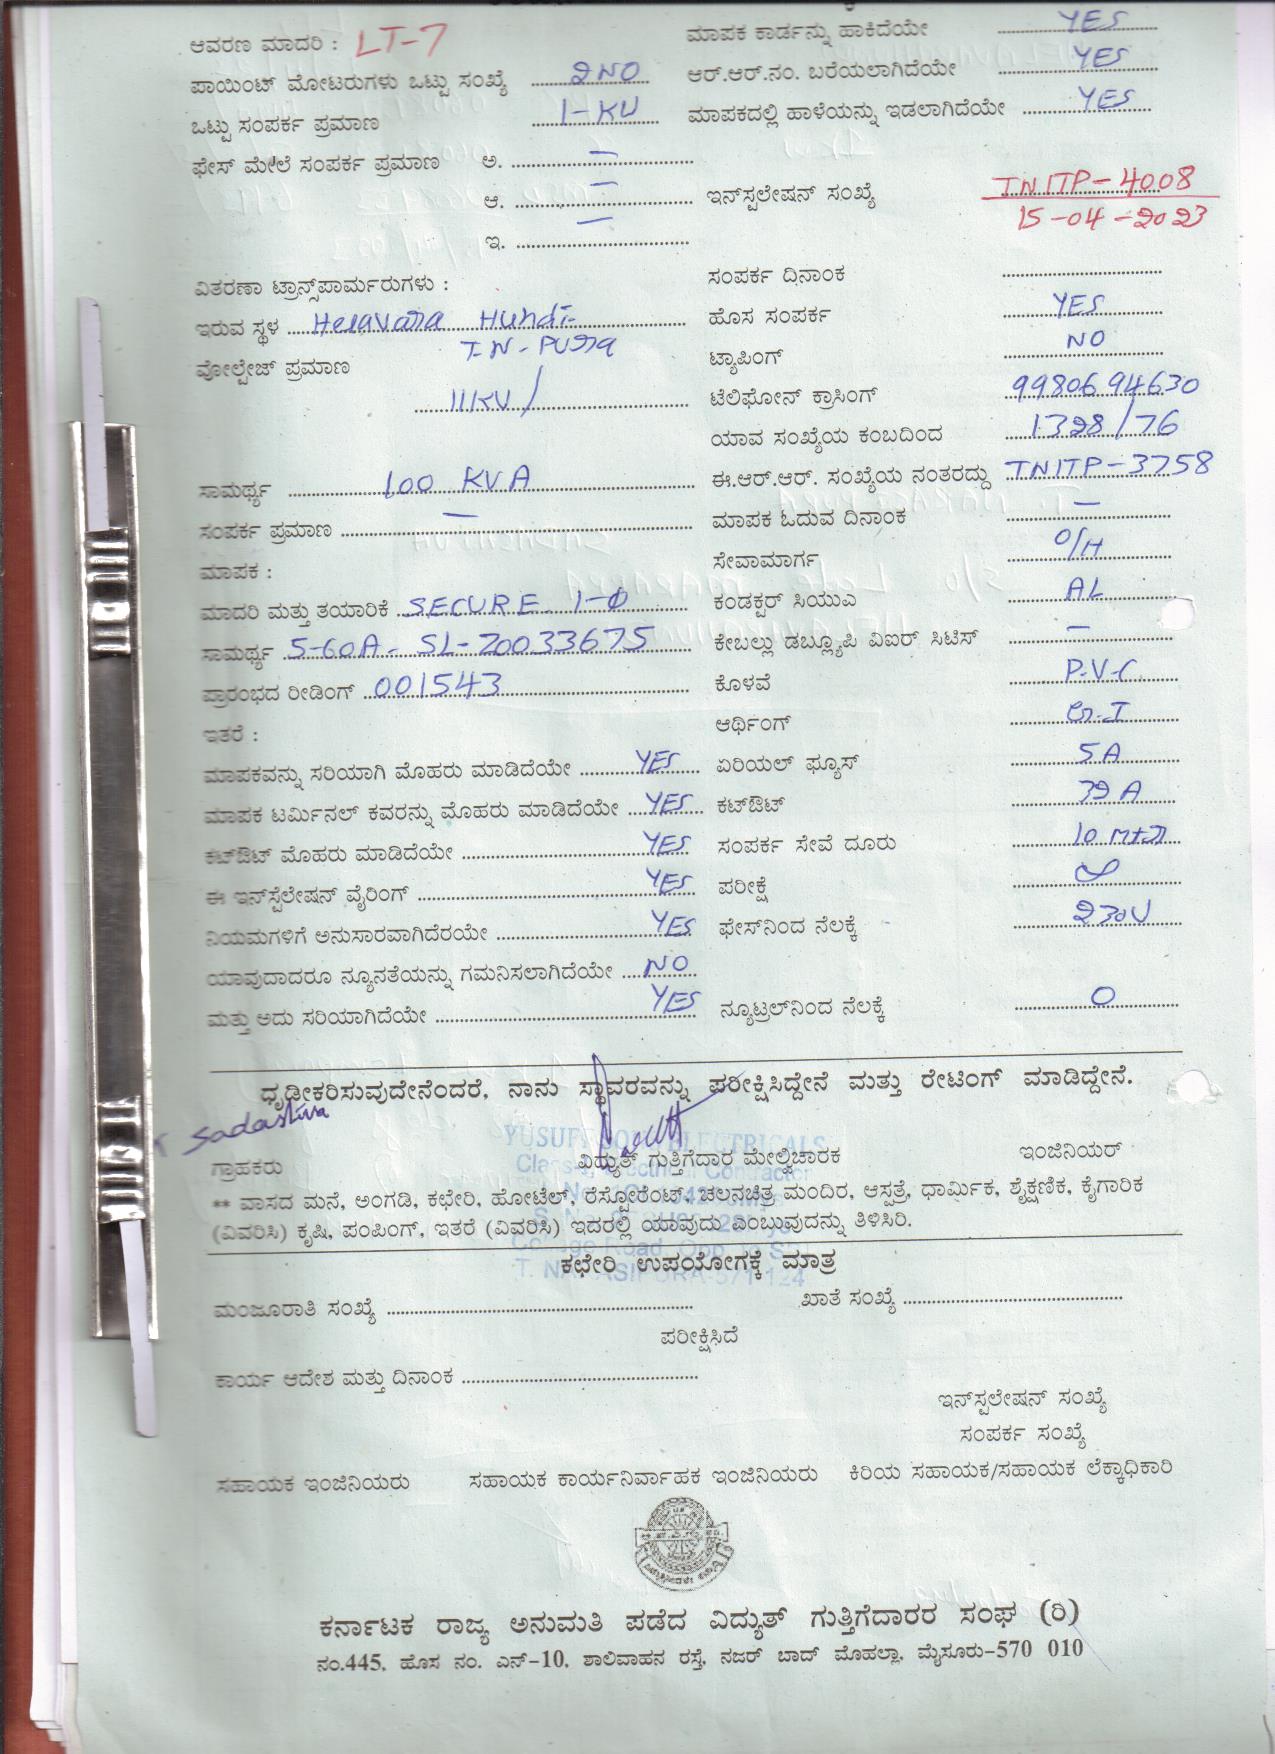 ಆವರಣ ಮಾದರಿ : LT-7
ಮಾಪಕ ಕಾರ್ಡನ್ನು ಹಾಕಿದೆಯೇ YES
ಪಾಯಿಂಟ್ ಮೋಟರುಗಳು ಒಟ್ಟು ಸಂಖ್ಯೆ 2NO
ಆರ್.ಆರ್.ನಂ. ಬರೆಯಲಾಗಿದೆಯೇ YES
ಒಟ್ಟು ಸಂಪರ್ಕ ಪ್ರಮಾಣ 1-KV
ಮಾಪಕದಲ್ಲಿ ಹಾಳೆಯನ್ನು ಇಡಲಾಗಿದೆಯೇ YES
ಫೇಸ್ ಮೇಲೆ ಸಂಪರ್ಕ ಪ್ರಮಾಣ ಅ. –
ಆ. –
ಇನ್‌ಸ್ಪಲೇಷನ್ ಸಂಖ್ಯೆ TNITP-4008
15-04-2023
ಇ. –
ವಿತರಣಾ ಟ್ರಾನ್ಸ್‌ಪಾರ್ಮರುಗಳು :
ಸಂಪರ್ಕ ದಿನಾಂಕ
ಇರುವ ಸ್ಥಳ Helavara Hundi-
T-N-Pura
ಹೊಸ ಸಂಪರ್ಕ YES
ವೋಲ್ಟೇಜ್ ಪ್ರಮಾಣ
11KV/
ಟ್ಯಾಪಿಂಗ್ NO
ಟೆಲಿಫೋನ್ ಕ್ರಾಸಿಂಗ್ 9980694630
ಯಾವ ಸಂಖ್ಯೆಯ ಕಂಬದಿಂದ 1328/76
ಸಾಮರ್ಥ್ಯ 100 KVA
ಈ.ಆರ್.ಆರ್. ಸಂಖ್ಯೆಯ ನಂತರದ್ದು TNITP-3758
ಸಂಪರ್ಕ ಪ್ರಮಾಣ –
ಮಾಪಕ ಓದುವ ದಿನಾಂಕ –
ಮಾಪಕ :
ಸೇವಾಮಾರ್ಗ O/H
ಮಾದರಿ ಮತ್ತು ತಯಾರಿಕೆ SECURE 1-Φ
ಕಂಡಕ್ಟರ್ ಸಿಯುಎ AL
ಸಾಮರ್ಥ್ಯ 5-60A- SL-20033675
ಕೇಬಲ್ಲು ಡಬ್ಲ್ಯೂಪಿ ವಿಐರ್ ಸಿಟಿಸ್ –
ಪ್ರಾರಂಭದ ರೀಡಿಂಗ್ 001543
ಕೊಳವೆ P.V.C
ಇತರೆ :
ಆರ್ಥಿಂಗ್ G.I
ಮಾಪಕವನ್ನು ಸರಿಯಾಗಿ ಮೊಹರು ಮಾಡಿದೆಯೇ YES
ಏರಿಯಲ್ ಫ್ಯೂಸ್ 5A
ಮಾಪಕ ಟರ್ಮಿನಲ್ ಕವರನ್ನು ಮೊಹರು ಮಾಡಿದೆಯೇ YES
ಕಟ್‌ಔಟ್ 32A
ಕಟ್‌ಔಟ್ ಮೊಹರು ಮಾಡಿದೆಯೇ YES
ಸಂಪರ್ಕ ಸೇವೆ ದೂರು 10 Mtr
ಈ ಇನ್‌ಸ್ಟೆಲೇಷನ್ ವೈರಿಂಗ್ YES
ಪರೀಕ್ಷೆ
ನಿಯಮಗಳಿಗೆ ಅನುಸಾರವಾಗಿದೆರಯೇ YES
ಫೇಸ್‌ನಿಂದ ನೆಲಕ್ಕೆ 230V
ಯಾವುದಾದರೂ ನ್ಯೂನತೆಯನ್ನು ಗಮನಿಸಲಾಗಿದೆಯೇ NO
ಮತ್ತು ಅದು ಸರಿಯಾಗಿದೆಯೇ YES
ನ್ಯೂಟ್ರಲ್‌ನಿಂದ ನೆಲಕ್ಕೆ 0
ಧೃಡೀಕರಿಸುವುದೇನೆಂದರೆ, ನಾನು ಸ್ಥಾವರವನ್ನು ಪರೀಕ್ಷಿಸಿದ್ದೇನೆ ಮತ್ತು ರೇಟಿಂಗ್ ಮಾಡಿದ್ದೇನೆ.
Sadashiva
ಗ್ರಾಹಕರು
ವಿದ್ಯುತ್ ಗುತ್ತಿಗೆದಾರ ಮೇಲ್ವಿಚಾರಕ
ಇಂಜಿನಿಯರ್
** ವಾಸದ ಮನೆ, ಅಂಗಡಿ, ಕಛೇರಿ, ಹೋಟೆಲ್, ರೆಸ್ಟೋರೆಂಟ್, ಚಲನಚಿತ್ರ ಮಂದಿರ, ಆಸ್ಪತ್ರೆ, ಧಾರ್ಮಿಕ, ಶೈಕ್ಷಣಿಕ, ಕೈಗಾರಿಕ
(ವಿವರಿಸಿ) ಕೃಷಿ, ಪಂಪಿಂಗ್, ಇತರೆ (ವಿವರಿಸಿ) ಇದರಲ್ಲಿ ಯಾವುದು ಎಂಬುವುದನ್ನು ತಿಳಿಸಿರಿ.
ಕಛೇರಿ ಉಪಯೋಗಕ್ಕೆ ಮಾತ್ರ
ಮಂಜೂರಾತಿ ಸಂಖ್ಯೆ
ಖಾತೆ ಸಂಖ್ಯೆ
ಪರೀಕ್ಷಿಸಿದೆ
ಕಾರ್ಯ ಆದೇಶ ಮತ್ತು ದಿನಾಂಕ
ಇನ್‌ಸ್ಪಲೇಷನ್ ಸಂಖ್ಯೆ
ಸಂಪರ್ಕ ಸಂಖ್ಯೆ
ಸಹಾಯಕ ಇಂಜಿನಿಯರು
ಸಹಾಯಕ ಕಾರ್ಯನಿರ್ವಾಹಕ ಇಂಜಿನಿಯರು
ಕಿರಿಯ ಸಹಾಯಕ/ಸಹಾಯಕ ಲೆಕ್ಕಾಧಿಕಾರಿ
ಕರ್ನಾಟಕ ರಾಜ್ಯ ಅನುಮತಿ ಪಡೆದ ವಿದ್ಯುತ್ ಗುತ್ತಿಗೆದಾರರ ಸಂಘ (ರಿ)
ನಂ.445, ಹೊಸ ನಂ. ಎನ್-10, ಶಾಲಿವಾಹನ ರಸ್ತೆ, ನಜರ್ ಬಾದ್ ಮೊಹಲ್ಲಾ, ಮೈಸೂರು-570 010